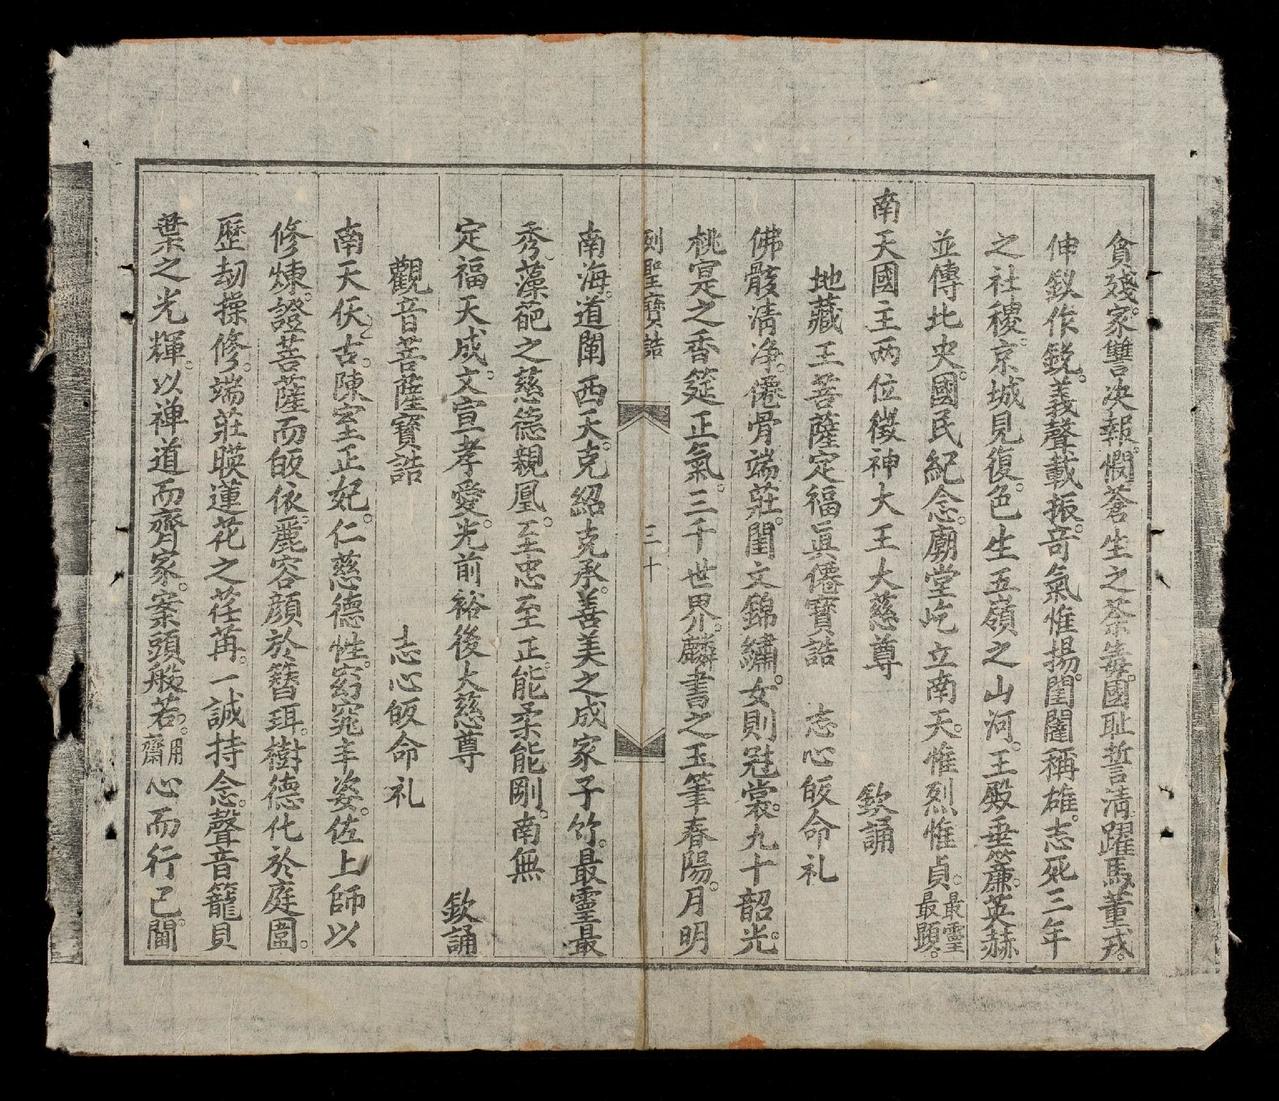 貪殘家讐决報憫蒼生之荼毒國耻誓淸躍馬董戎
伸釵作鋭義聲載振奇氣惟揚閨闥稱雄志死三年
之社稷京城見復色生五嶺之山河王殿垂簾英赫
並傳北史國民紀念廟堂屹立南天惟烈惟貞最靈最顯
南天國主兩位徵神大王大慈尊 欽誦
地藏王菩薩定福眞僊寶誥 志心皈命礼
佛骸淸净僊骨端莊閨文錦繡女則冠裳九十韶光
桃寔之香筵正氣三千世界麟書之玉筆春陽月明
列聖寶誥 三十
南海道闡西天克紹克承善美之成家子竹最靈最
秀藻葩之慈德親凰至忠至正能柔能剛南無
定福天成文宣孝愛光前裕後大慈尊 欽誦
觀音菩薩寶誥 志心皈命礼
南天仸古陳室正妃仁慈德性窈窕丰姿佐上師以
修煉證菩薩而皈依麗容顔於簪珥樹德化於庭圍
歷劫操修端莊暎蓮花之荏苒一誠持念聲音籠貝
葉之光輝以禅道而齊家案頭般若用齋心而行己閫